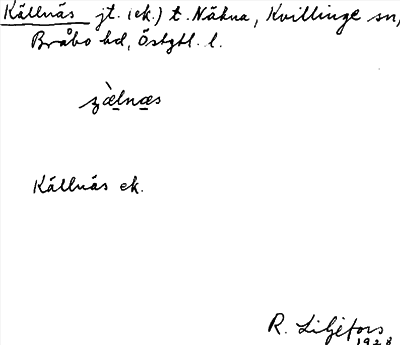 Källnäs jt. (ek.) t. Näkna, Kvillinge sn,
Bråbo hd, Östgtl. l.
zæ̀lnæs
Källnäs ek.
R. Liljefors
1928